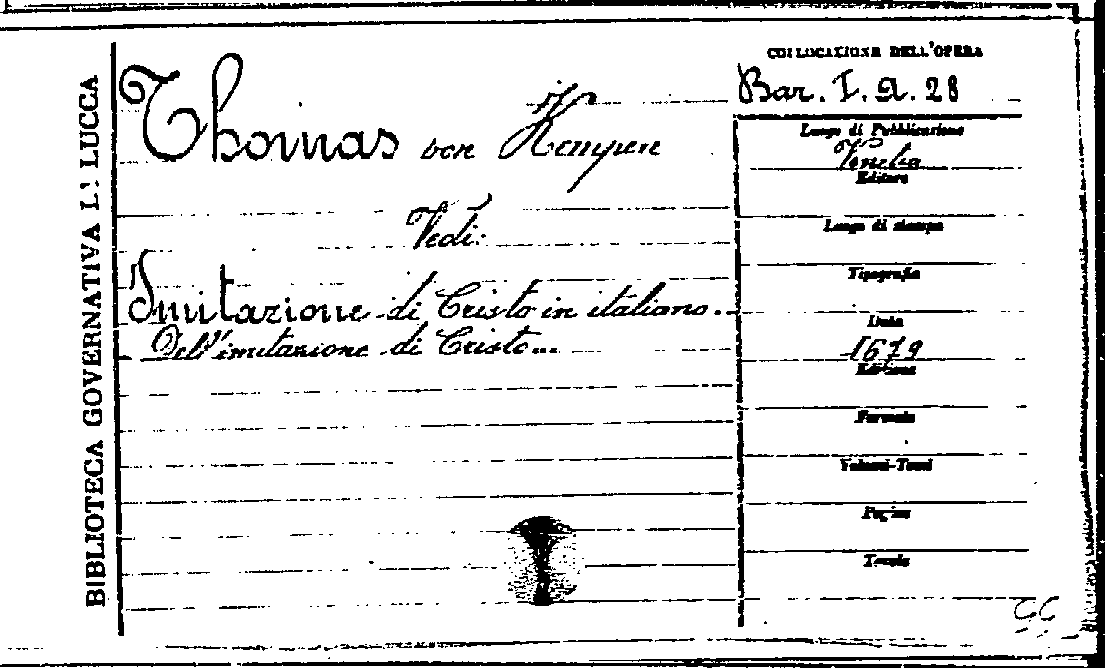 BIBLIOTECA GOVERNATIVA L: LUCCA
COLLOCAZIONE DELL'OPERA
Bar. I. A. 28
Thomas von Kempen
Vedi:
Imitazione di Cristo in italiano...
Dell'imitazione di Cristo...
Luogo di Pubblicazione
Venetia
Editore
Luogo di stampa
Tipografia
Data
1679
Edizione
Formato
Volumi-Tomi
Pagine
Tavole